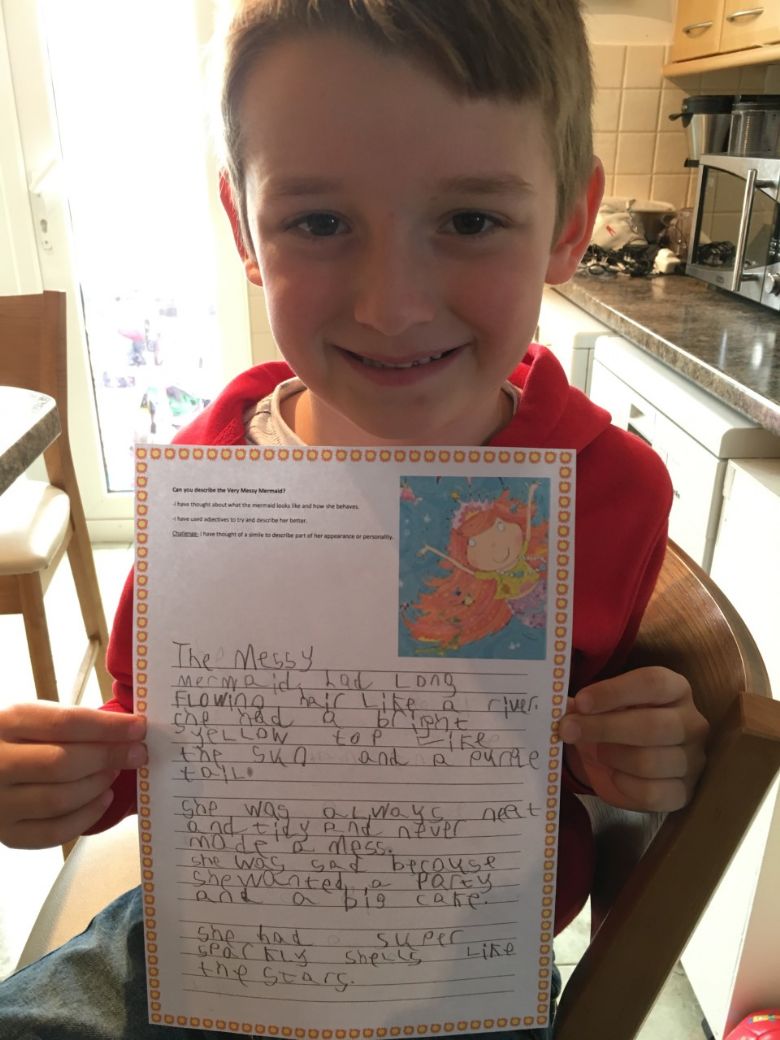 Can you describe the Very Messy Mermaid?
-I have thought about what the mermaid looks like and how she behaves.
-I have used adjectives to try and describe her better.
Challenge- I have thought of a simile to describe part of her appearance or personality.
The Messy
mermaid, had Long
Flowing hair Like a river.
she had a bright
yellow top Like
the sun and a purple
tail.
she was always neat
and tidy and never
made a mess.
she was sad because
she wanted a Party
and a big cake.
she had super
sparkly shells Like
the stars.